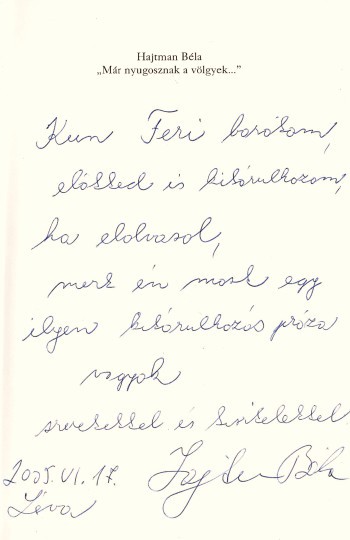 Hajtman Béla
„Már nyugosznak a völgyek..."
Kun Feri barátom,
előtted is kitárulkozom,
ha elolvasol,
mert én most egy
ilyen kitárulkozós próza
vagyok
szeretettel és tisztelettel
2005. VI. 17.
Léva
Hajtman Béla